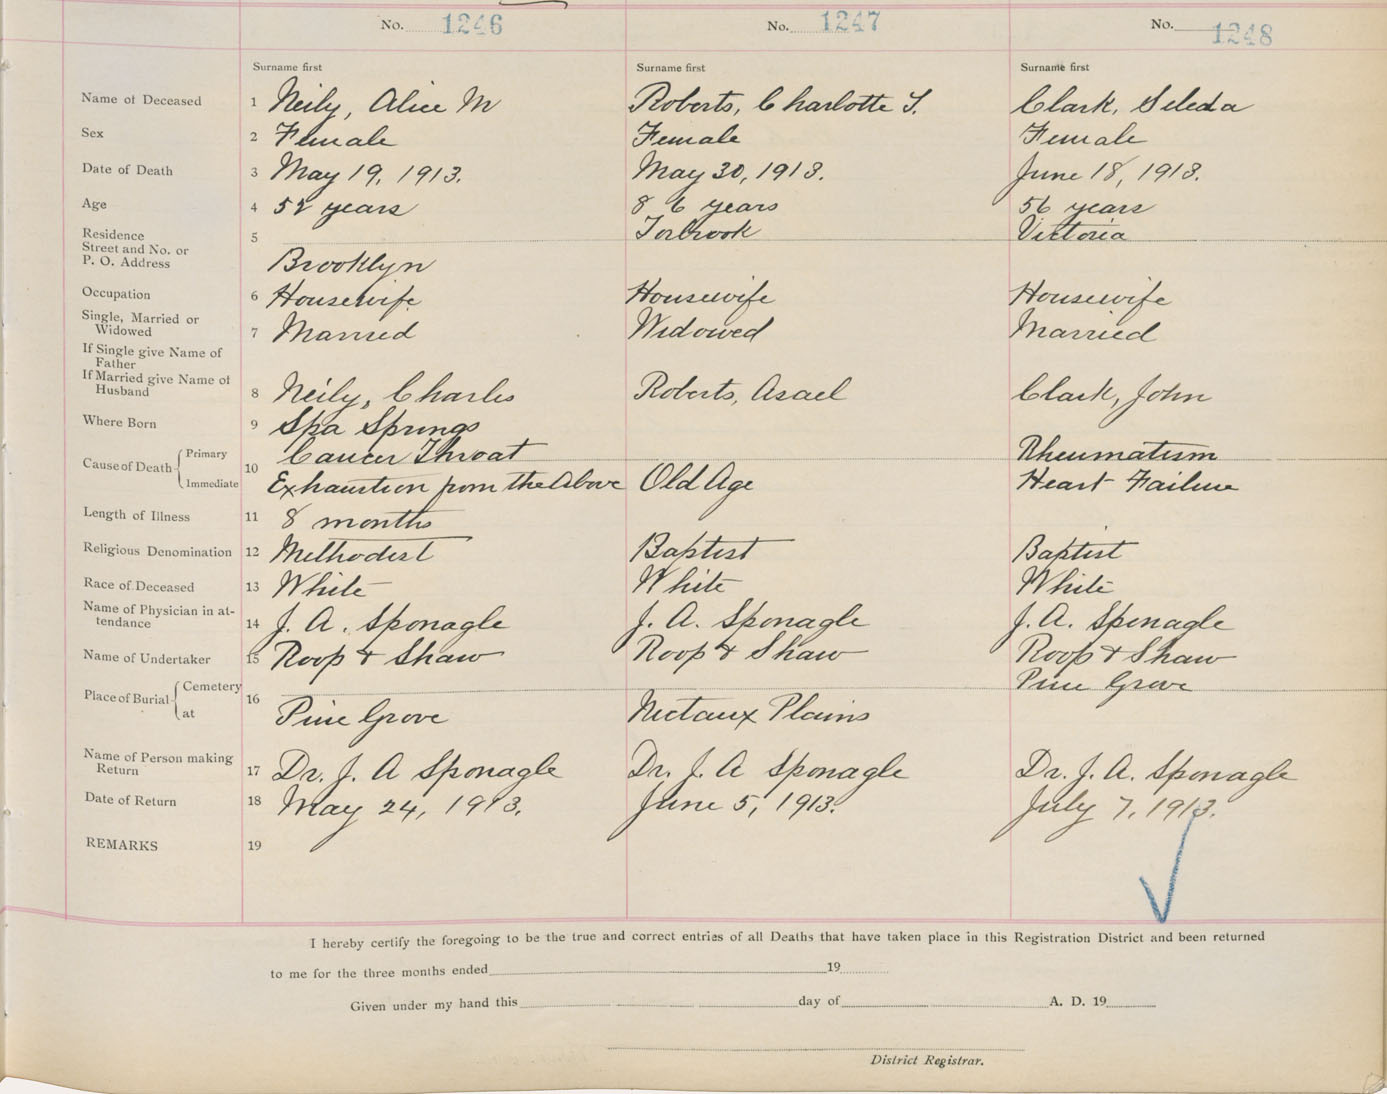 No. 1246 No. 1247 No. 1248
Surname first Surname first Surname first
Name of Deceased 1 Neily, Alice M Roberts, Charlotte T. Clark, Seleda
Sex 2 Female Female Female
Date of Death 3 May 19, 1913. May 30, 1913. June 18, 1913.
Age 4 years 86 years 56 years
Residence 5 Torbrook Victoria
Street and No. or
P. O. Address Brooklyn
Occupation 6 Housewife Housewife Housewife
Single, Married or
Widowed 7 Married Widowed Married
If Single give Name of
Father
If Married give Name of
Husband 8 Neily, Charles Roberts, Asael Clark, John
Where Born 9 Spa Springs
Cause of Death Primary Cancer Throat Rheumatism
10
Immediate Exhaustion from the Above Old Age Heart Failure
Length of Illness 11 8 months
Religious Denomination 12 Methodist Baptist Baptist
Race of Deceased 13 White White White
Name of Physician in at-
tendance 14 J. A. Sponagle J. A. Sponagle J. A. Sponagle
Name of Undertaker 15 Roop & Shaw Roop & Shaw Roop & Shaw
Place of Burial Cemetery 16 Pine Grove
at Pine Grove Nictaux Plains
Name of Person making
Return 17 Dr. J. A Sponagle Dr. J. A Sponagle Dr. J. A. Sponagle
Date of Return 18 May 24, 1913. June 5, 1913. July 7, 1913.
REMARKS 19
I hereby certify the foregoing to be the true and correct entries of all Deaths that have taken place in this Registration District and been returned
to me for the three months ended 19
Given under my hand this day of A. D. 19
District Registrar.